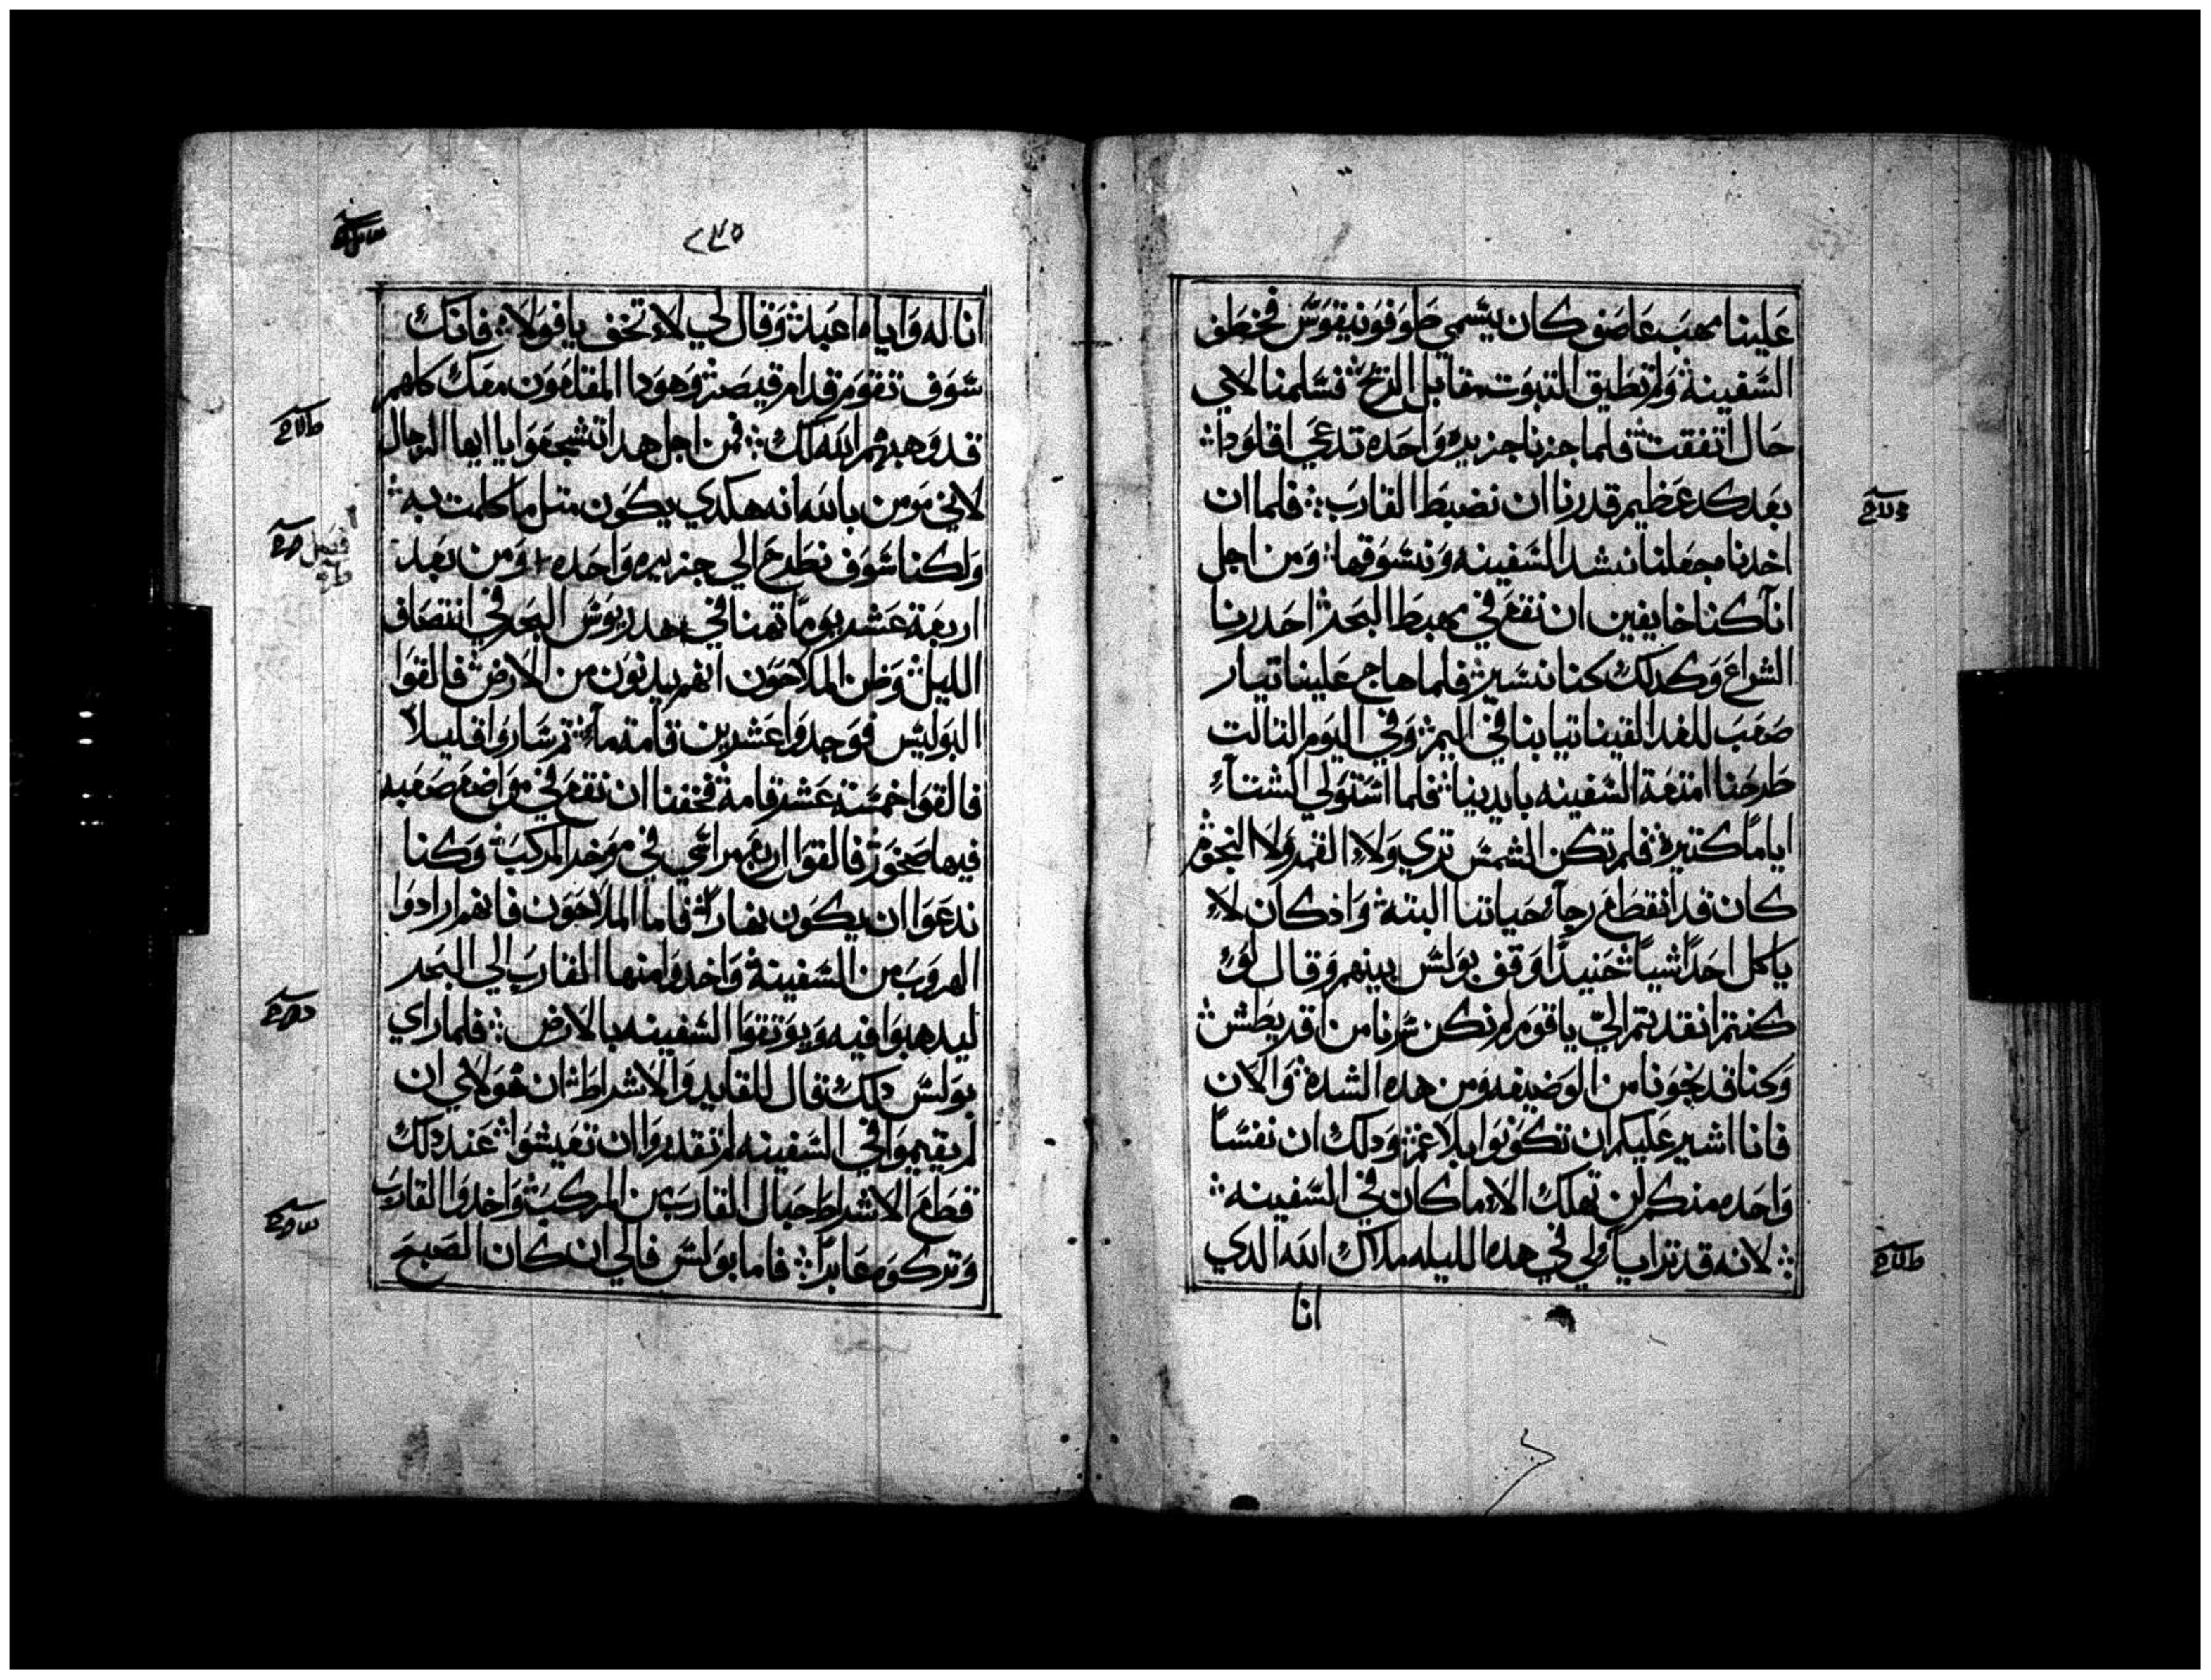 علينا مهب عاصف كان يسمي طوفونيقوس فخطف
السفينة ولم نطيق التبوت مقابل الريح فسلمنا لاي
حال اتفقت فلما جزنا جزيره واحده تدعي اقلودا
بعد كد عظيم قدرنا ان نضبط القارب فلما ان
اخدنا جعلنا نشد السفينه ونسوقها ومن اجل
انا كنا خايفين ان نقع في مهبط البحر احدرنا
الشراع وكدلك كنا نسير فلما هاج علينا تيار
صعب للغد القينا تيابنا في اليم وفي اليوم التالت
طرحنا امتعة السفينه بايدينا فلما استولي الشتاء
اياما كتيرة فلم تكن الشمس تري ولا القمر ولا النجوم
كان قد انقطع رجاء حياتنا البتة واذ كان لا
ياكل احدا شيا حنيدا وقف بولس بينهم وقال لو
كنتم انقديتم الي ياقوم لم نكن سرنا من اقريطش
وكنا قد نجونا من الوضيعه ومن هده الشدة والان
فانا اشير عليكم ان تكونوا بلا غم ودلك ان نفسا
واحده منكم لن تهلك الا ما كان في السفينه
لانه قد ترايا لي في هده الليله ملاك الله الدي
انا
٢٤٥
انا له واياه اعبد وقال لي لا تخف يا فولا فانك
سوف تقوم قدام قيصر وهودا المقلعون معك كلهم
قد وهبهم الله لك فمن اجل هدا تشجعوا يا ايها الرجال
لاني مومن بالله انه هكدي يكون متل ما كلمت به
ولكنا سوف نطرح الي جزيره واحده ومن بعد
اربعة عشر يوما تهنا في هدريوس البحر في انتصاف
الليل وظن الملاحون انهم يدنون من الارض فالقوا
البوليس فوجدوا عشرين قامة ماء تم ساروا قليلا
فالقوا خمسة عشر قامة فخفنا ان نقع في مواضع صعبه
فيها صخور فالقوا اربع مراسي في موخر المركب وكنا
ندعوا ان يكون نهارا فاما الملاحون فانهم ارادوا
الهروب من السفينة واخدوا منها القارب الي البحر
ليدهبوا فيه ويوتقوا السفينه بالارض فلما راي
بولس دلك قال للقايد والاشراط ان هولاي ان
لم يقيموا في السفينه لم تقدروا ان تعيشوا عند دلك
قطع الاشراط حبال القارب من المركب واخدوا القارب
وتركوه عابرا فاما بولس فالي ان كان الصبح